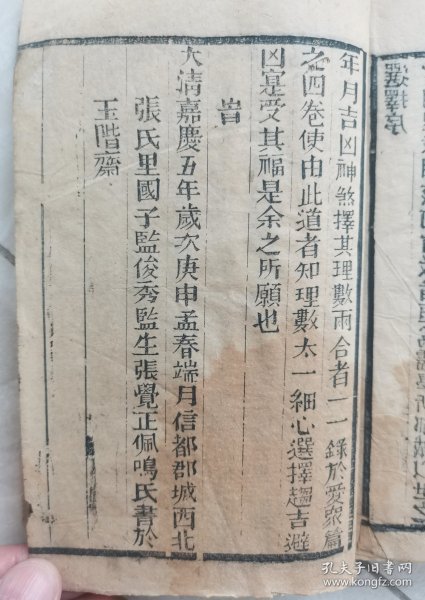 選擇序
年月吉凶神煞擇其理數兩合者一一錄於愛眾篇
之四卷使由此道者知理數太一細心選擇趨吉避
凶寔受其福是余之所願也
旹
大清嘉慶五年歲次庚申孟春端月信都郡城西北
張氏里國子監俊秀監生張覺正佩鳴氏書於
玉階齋
孔夫子旧书网
www.kongfz.com